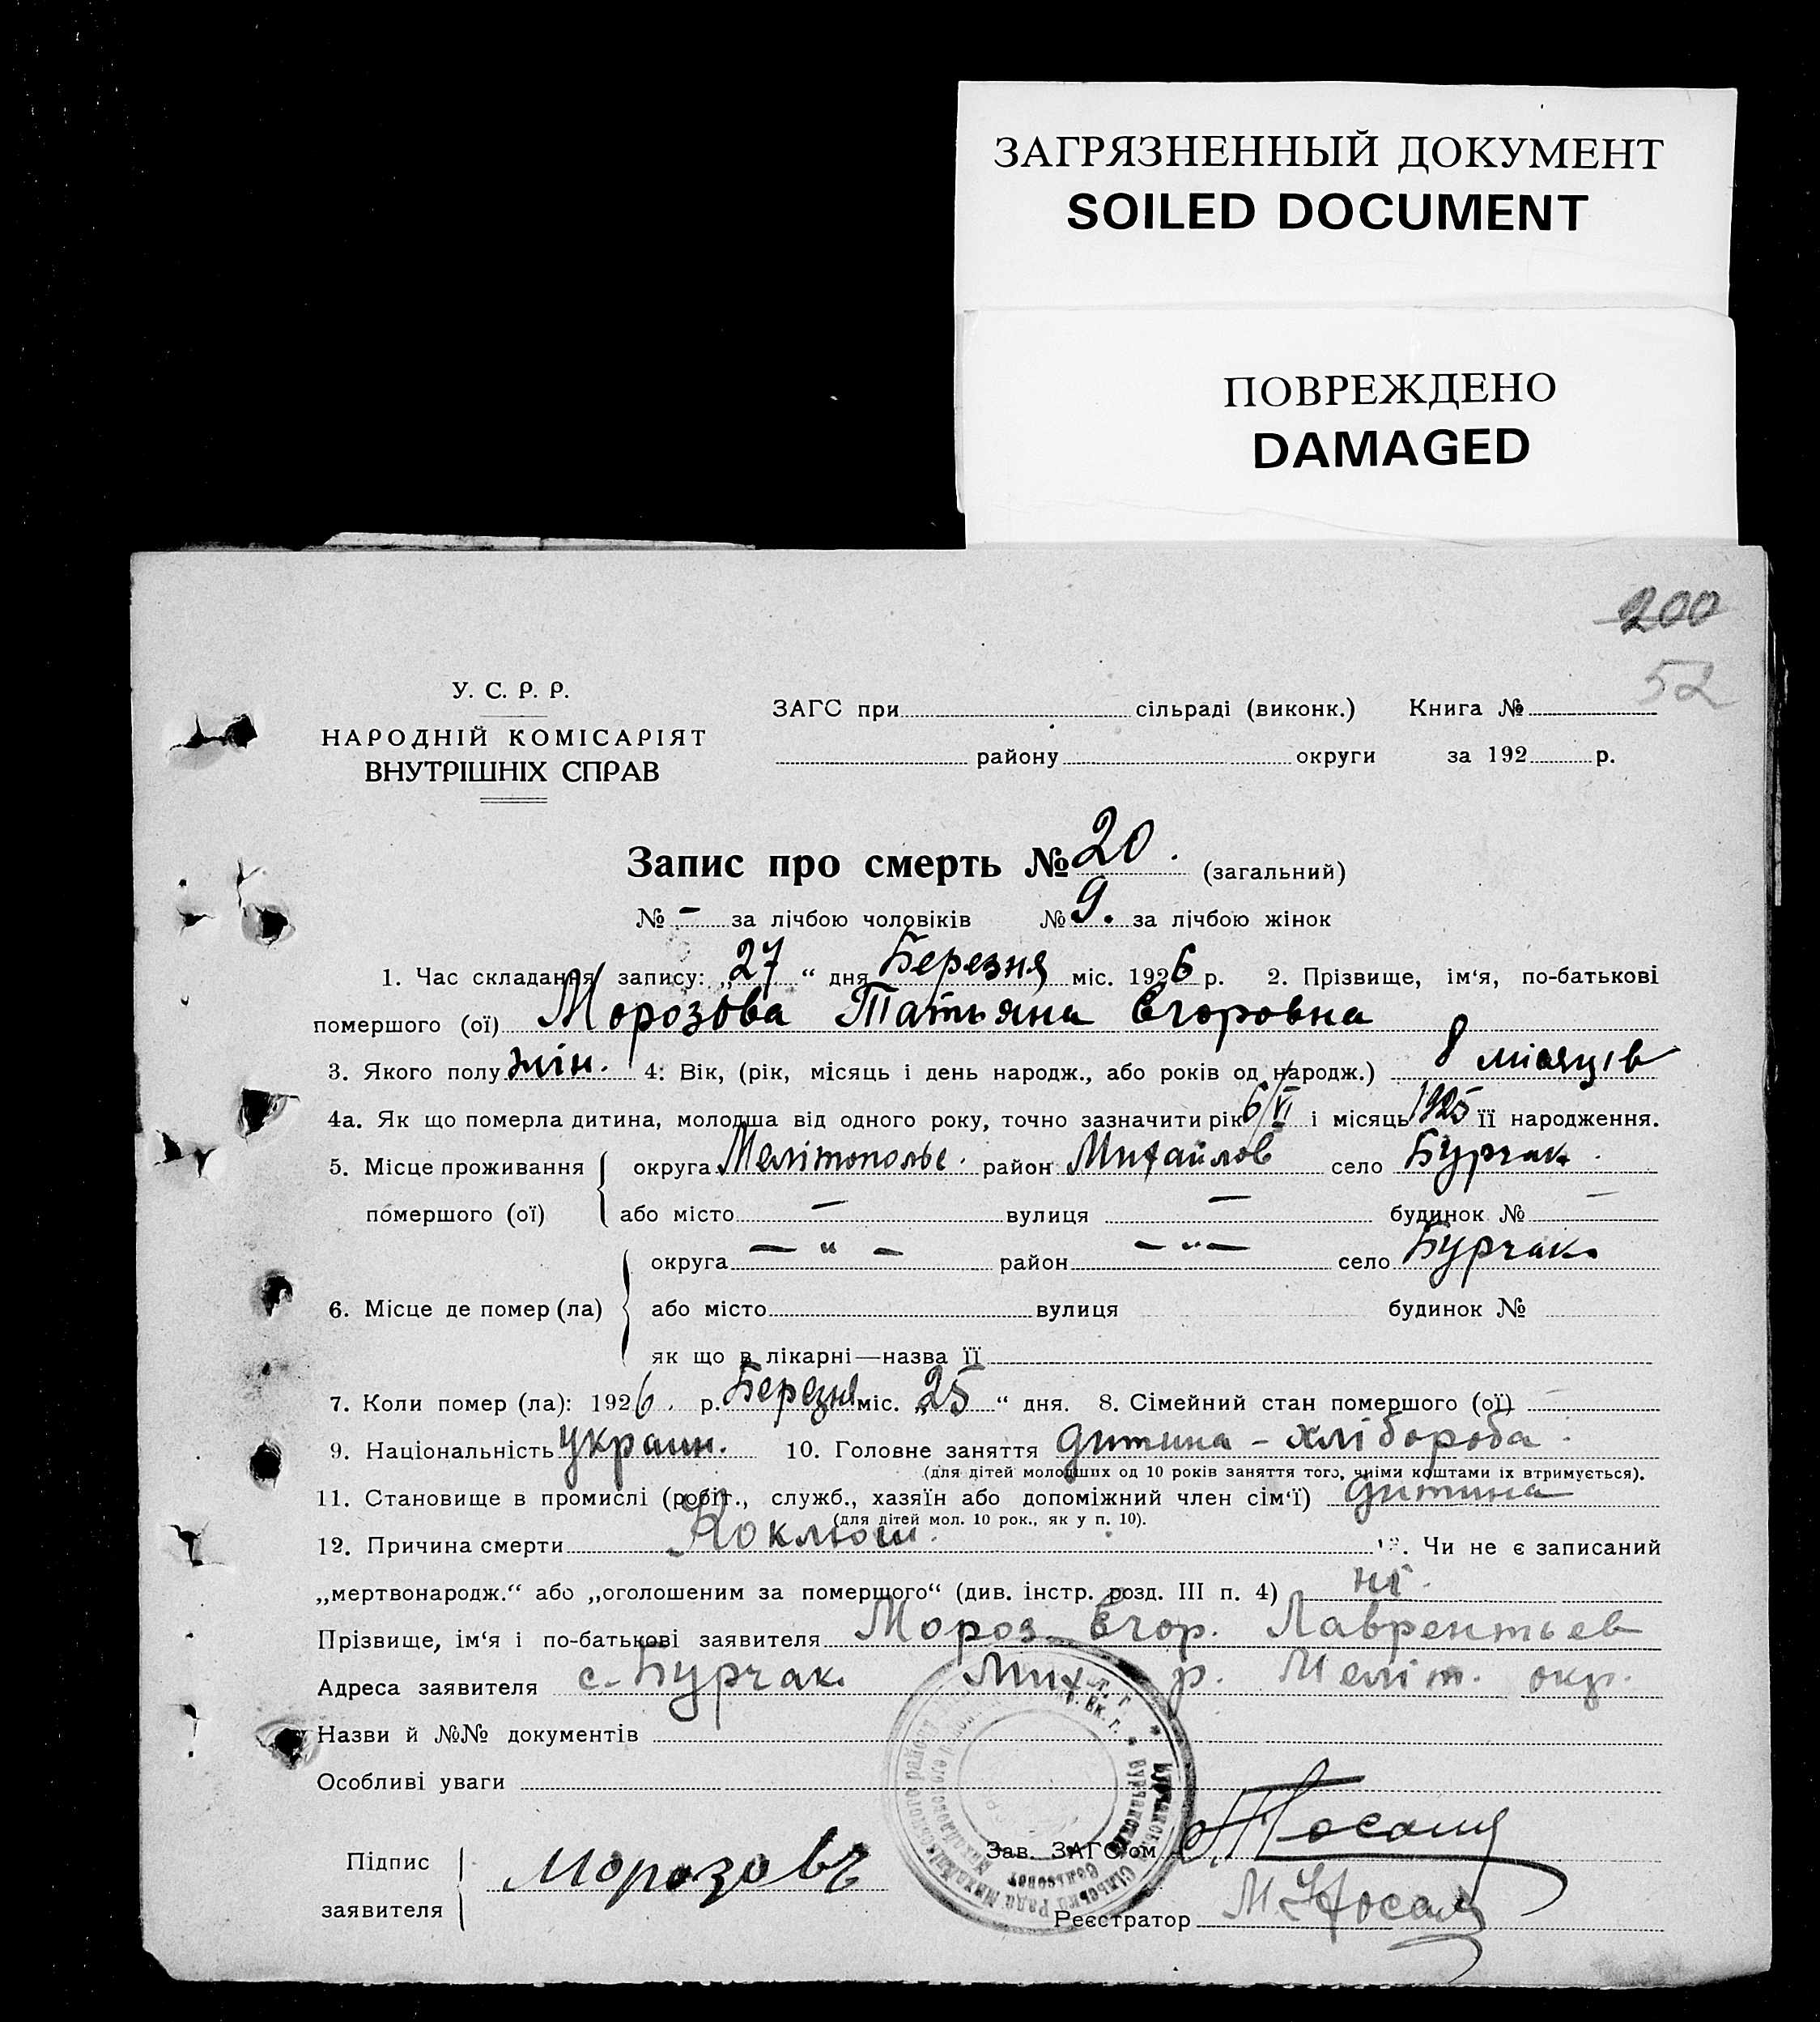 ЗАГРЯЗНЕННЫЙ ДОКУМЕНТ
SOILED DOCUMENT
ПОВРЕЖДЕНО
DAMAGED
200
52
У. С. Р. Р.
НАРОДНІЙ КОМІСАРІЯТ
ВНУТРІШНІХ СПРАВ
ЗАГС при сільраді (виконк.) Книга №
району округи за 192 р.
Запис про смерть № 20. (загальний)
№ - за лічбою чоловіків № 9. за лічбою жінок
1. Час складання запису: „27“ дня Березня міс. 1926 р. 2. Прізвище, ім‘я, по-батькові
помершого (ої) Морозова Татьяна Єгоровна
3. Якого полу жін. 4: Вік, (рік, місяць і день народж., або років од народж.) 8 місяців
4а. Як що померла дитина, молодша від одного року, точно зазначити рік 6/VI і місяць 1925 її народження.
5. Місце проживання округа Мелітопольс. район Михайлов село Бурчак.
помершого (ої) або місто — вулиця — будинок № —
округа — “ — район — “ — село Бурчак.
6. Місце де помер (ла) або місто вулиця будинок №
як що в лікарні—назва її
7. Коли помер (ла): 1926 р. Березня міс. „25“ дня. 8. Сімейний стан помершого (ої) —
9. Національність украин. 10. Головне заняття дитина - хлібороба
(для дітей молодших од 10 років заняття того, чиїми коштами їх втримується).
11. Становище в промислі (робіт., служб., хазяїн або допоміжний член сім‘ї) дитина
(для дітей мол. 10 рок., як у п. 10).
12. Причина смерти Коклюш. 13. Чи не є записаний
„мертвонародж.“ або „оголошеним за померщого“ (див. інстр. розд. III п. 4) ні.
Прізвище, ім‘я і по-батькові заявителя Мороз Єгор. Лаврентьев
Адреса заявителя с. Бурчак. Мих. р. Меліт. окр.
Назви й №№ документів
Особливі уваги
Підпис
заявителя
Морозовъ
Зав. ЗАГС‘ом
Реєстратор